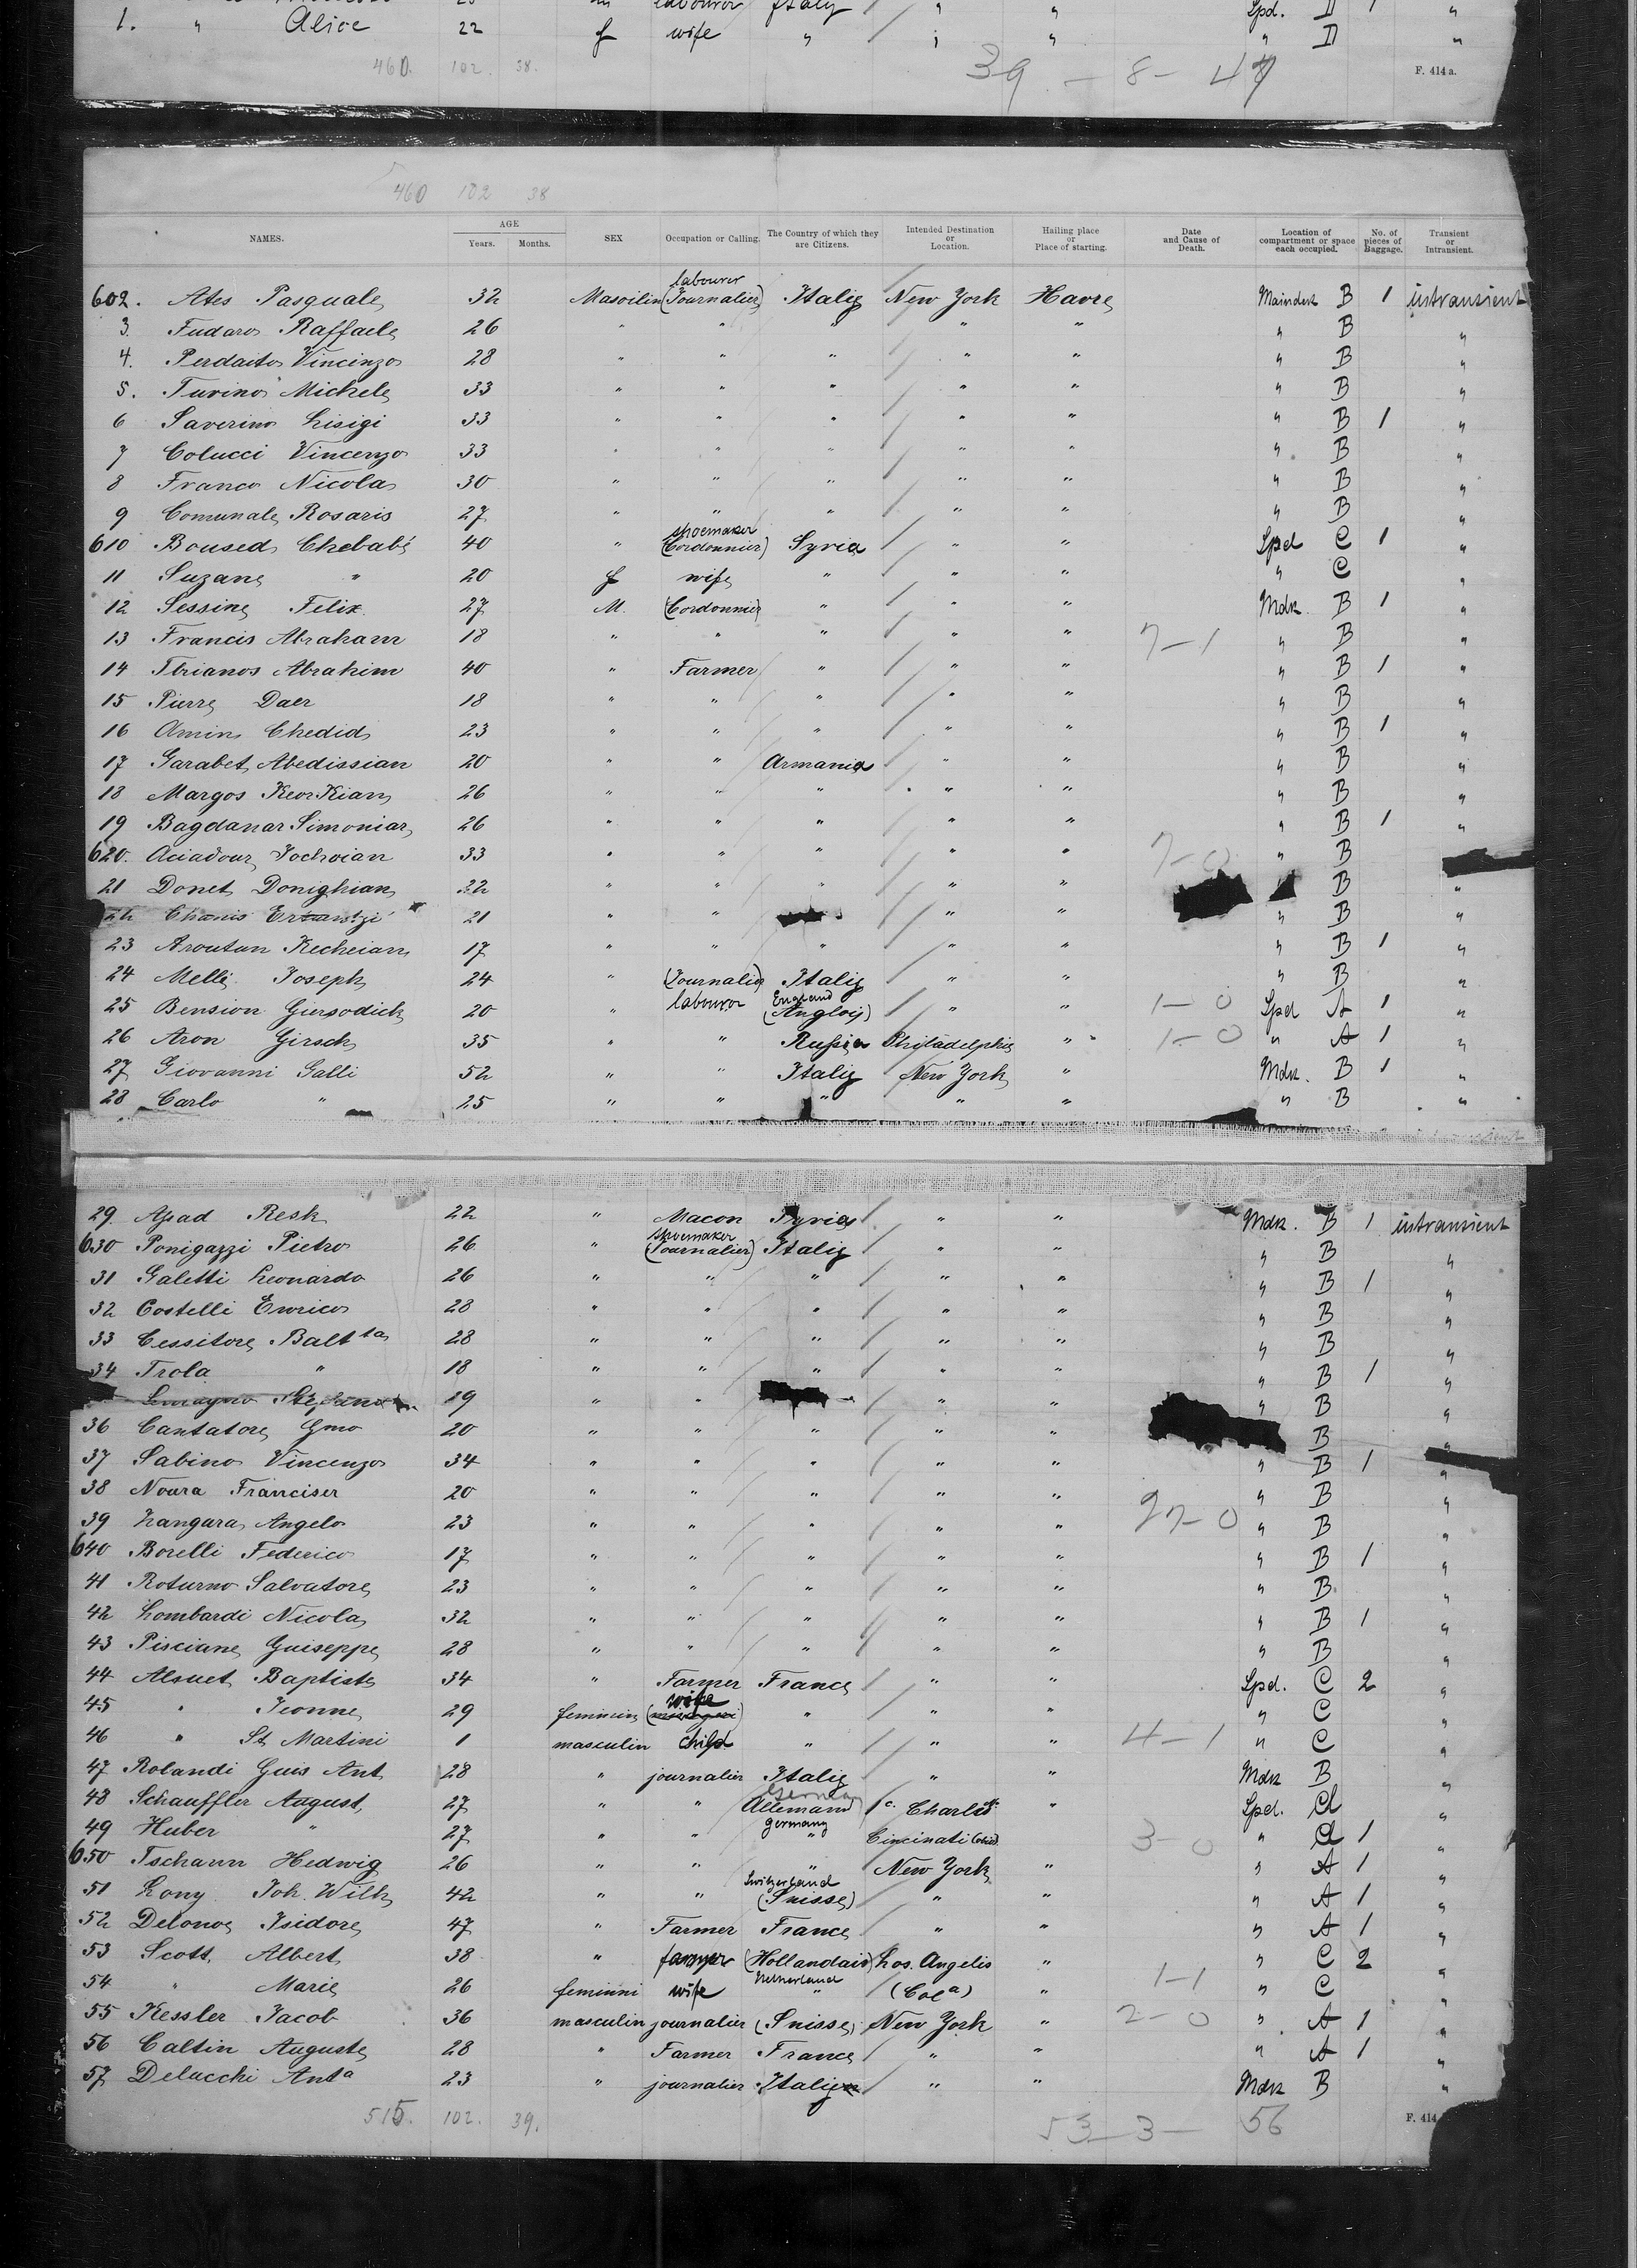 labouror Italy " " Spd. D 1 "
1. " Alice 22 f wife " " " " D "
460. 102. 38. 39 - 8 - 47 F. 414 a.
460 102 38
NAMES. AGE Years. Months. SEX Occupation or Calling. The Country of which they are Citizens. Intended Destination or Location. Hailing place or Place of starting. Date and Cause of Death. Location of compartment or space each occupied. No. of pieces of Baggage. Transient or Intransient.
labourer
602. Ates Pasquale 32 Masculin (Journalier) Italie New York Havre Maindek B 1 intransient
3. Fudaro Raffaele 26 " " " " " " B "
4. Perdaito Vincinzo 28 " " " " " " B "
5. Turino Michele 33 " " " " " " B "
6 Saverino Lisigi 33 " " " " " " B 1 "
7 Colucci Vincenzo 33 " " " " " " B "
8 Franco Nicola 30 " " " " " " B "
9 Comunale Rosaris 27 " " " " " " B "
shoemaker
610 Boused Chebabi 40 " (Cordonnier) Syria " " Spd C 1 "
11 Suzane " 20 f wife " " " " C "
12 Sessine Felix 27 M. (Cordonnier) " " " Mdk. B 1 "
13 Francis Abraham 18 " " " " " 7-1 " B "
14 Tbrianos Abrahim 40 " Farmer " " " " B 1 "
15 Pierre Daer 18 " " " " " " B "
16 Amin Chedid 23 " " " " " " B 1 "
17 Garabet Abedissian 20 " " Armania " " " B "
18 Margos KeorKian 26 " " " " " " B "
19 Bagdanar Simoniar 26 " " " " " " B 1 "
620. Aciadour Jochoian 33 " " " " " 7-0 " B
21 Donet Donighian 32 " " " " " B "
22 Chanis Ertantzi 21 " " " " " B "
23 Aroutun Kecheian 17 " " " " " " B 1 "
24 Melli Joseph 24 " (Journalier) Italie " " " B "
25 Bension Giersodick 20 " labouror England (Anglois) " " 1-0 Spd A 1 "
26 Aron Girsch 35 " " Russia Philadelphia " 1-0 " A 1 "
27 Giovanni Galli 52 " " Italie New York " Mdk. B 1 "
28 Carlo " 25 " " " " " " B "
29. Assad Resk 22 " Macon Syria " " Mdk. B 1 intransient
shoemaker
630 Ponigazzi Pietro 26 " (Journalier) Italie " " " B "
31 Galetti Leonardo 26 " " " " " " B 1 "
32 Costelli Enrico 28 " " " " " " B "
33 Cessitore Balt ta 28 " " " " " " B "
34 Trola " 18 " " " " " " B 1 "
19 " " " " " B "
36 Cantatore Gmo 20 " " " " " B "
37 Sabino Vincenzo 34 " " " " " " B 1 "
38 Noura Franciser 20 " " " " " " B "
39 Zangara Angelo 23 " " " " " 27-0 " B "
640 Borelli Federico 17 " " " " " " B 1 "
41 Roturno Salvatore 23 " " " " " " B "
42 Lombardi Nicola 32 " " " " " " B 1 "
43 Pisciane Guiseppe 28 " " " " " " B "
44 Alsuet Baptiste 34 " Farmer France " " Spd. C 2 "
45 " Ivonne 29 feminin wife " " " " C "
46 " St Martini 1 masculin child " " " 4-1 " C "
47 Rolandi Guis Ant 28 " journalier Italie " " Mdk B "
48 Schauffler August 27 " " German Allemand Charles " Spd. A "
49 Huber " 27 " " germany " Cincinati (Ohio) 3-0 " A 1 "
650 Tschann Hedwig 26 " " " New York " " A 1 "
51 Lony Joh. Wilh 42 " " Switzerland (Suisse) " " " A 1 "
52 Delonoe Isidore 47 " Farmer France " " " A 1 "
53 Scott, Albert 38 " farmer (Hollandais) Los. Angelis " " C 2 "
54 " Marie 26 feminini wife Netherland " (Cola) " 1-1 " C "
55 Kessler Jacob 36 masculin journalier (Suisse) New York " 2-0 " A 1 "
56 Caltin Auguste 28 " Farmer France " " " A 1 "
57 Delucchi Anta 23 " journalier Italie " " Mdk B "
515. 102. 39. 53 - 3 - 56 F. 414